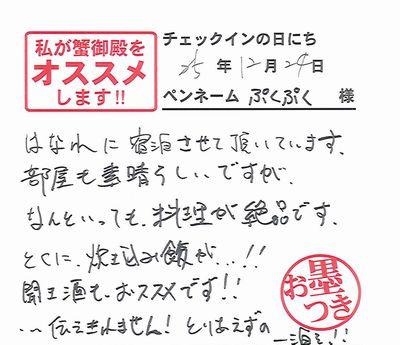 私が蟹御殿を
オススメ
します!!
チェックインの日にち
25年12月24日
ペンネーム ぷくぷく 様
はなれに宿泊させて頂いています。
部屋も素晴らしいですが、
なんといっても、料理が絶品です。
とくに、炊き込み飯が…!!
聞王酒も、おススメです!!
…伝えきれません! とりあえずの一泊を!!
お墨
つき